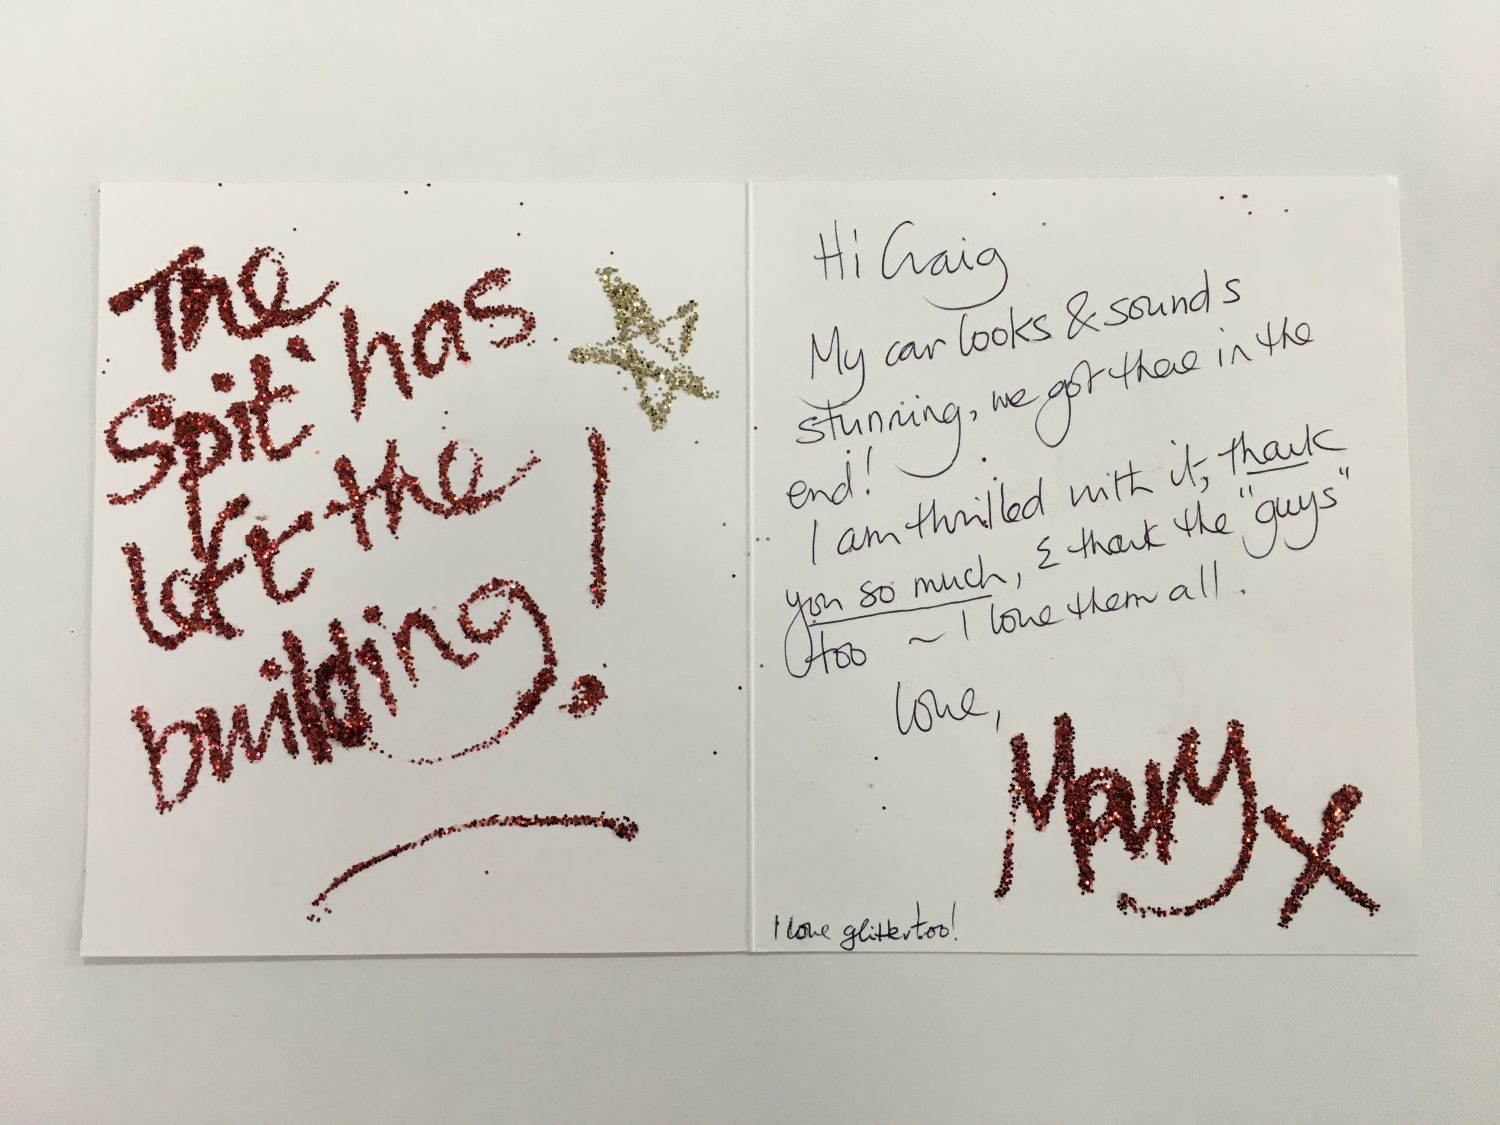 The
'Spit' has
left the
building!
Hi Craig
My car looks & sounds
stunning, we got there in the
end!
I am thrilled with it, thank
you so much, & thank the "guys"
too ~ I love them all.
Love,
Mary x
I love glitter too!